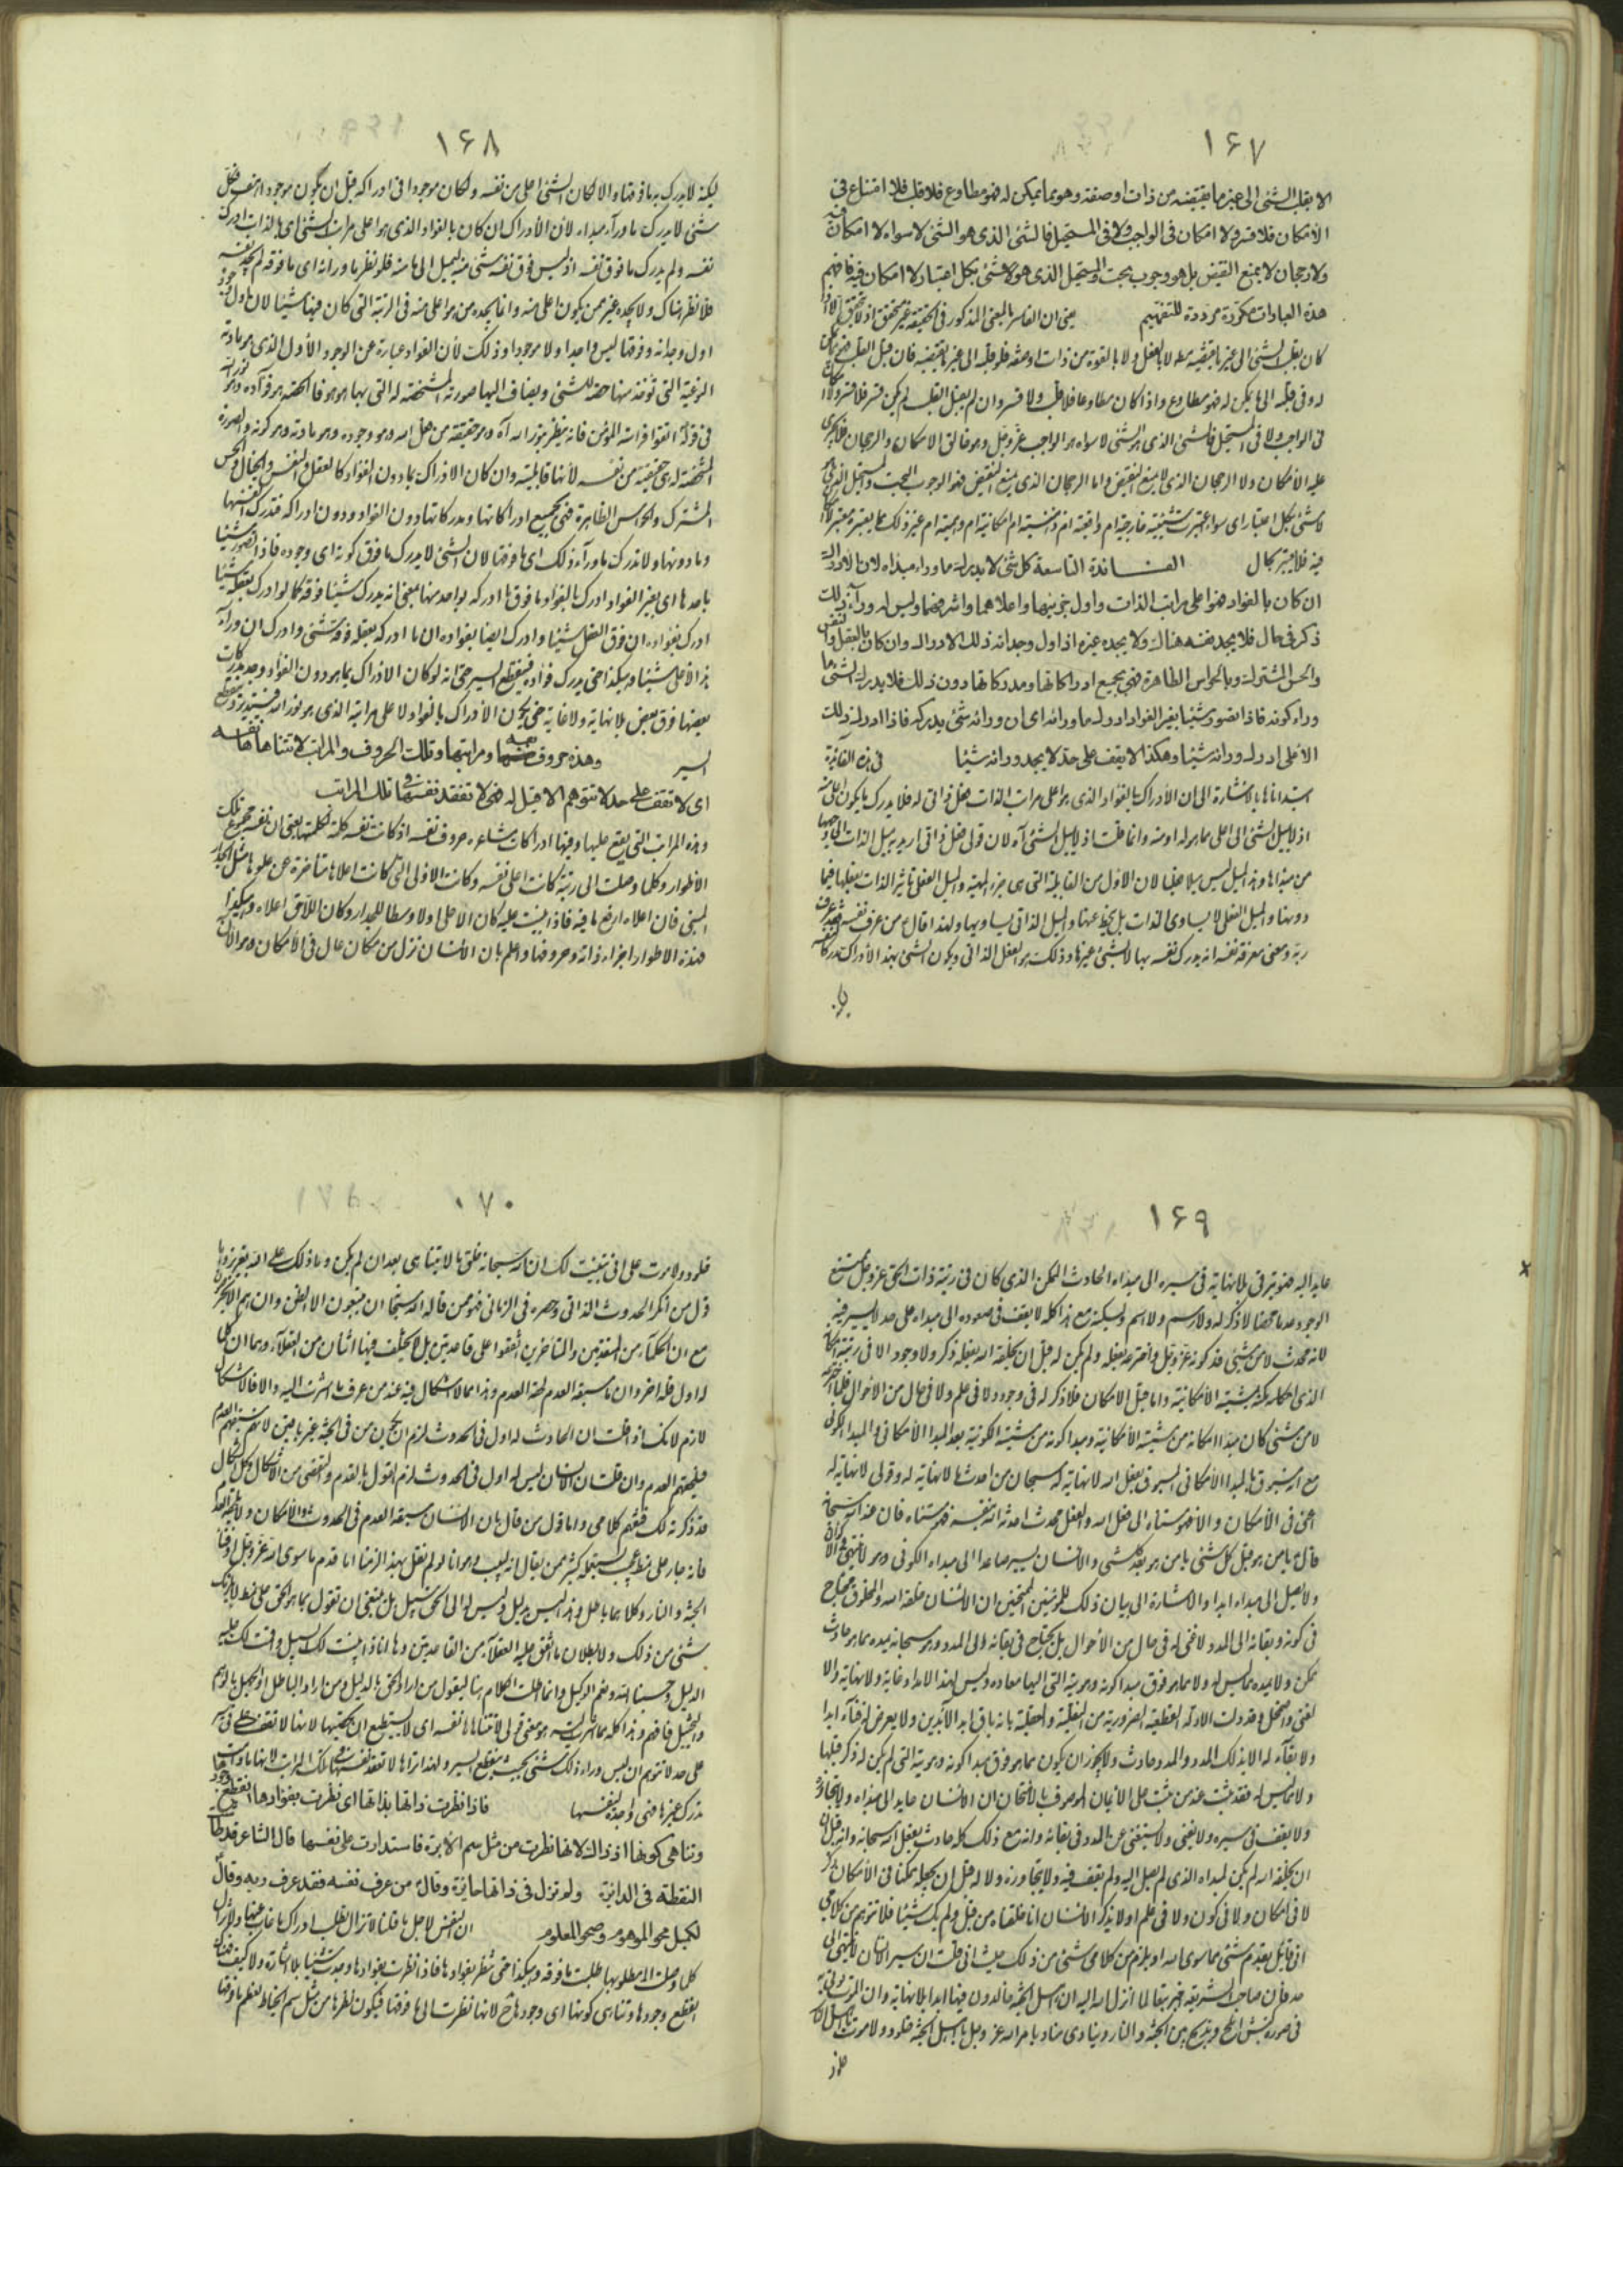 ١۶٧
الا بقلب الشئ الى غير ما يقتضيه من ذات او صفة وهو ما يمكن له فهو مطاوع فلا قلب فلا امتناع فى
الأمكان فلا قسر ولا امكان فى الواجب ولا فى المستحيل فالشئ الذى هو الشئ لا سواه لا امكان فيه
ولا رجحان لا يمنع النقيض بل هو وجوب بحت والمستحيل الذى هو لا شئ بكل اعتبار لا امكان فيه فافهم
هذه العبارات مكررة مرددة للتفهيم يعنى ان القاسر بالمعنى المذكور فى الحقيقة غير متحقق اذ لا يتحقق الا اذا
كان يقلب الشئ الى غير ما يقتضيه مطلقا لا بالفعل ولا بالقوة من ذات او صفة فلو قلبه الى غير ما يقتضيه فان قبل القلب
له وفى قلبه الى ما يمكن له فهو مطاوع واذا كان مطاوعا فلا قلب ولا قسر وان لم يقبل القلب لم يكن قسر فلا قسر ولا
فى الواجب ولا فى المستحيل فالشئ الذى هو الشئ لا سواه هو الواجب عز وجل وهو خالق الامكان والرجحان فلا يجرى
عليه الأمكان ولا الرجحان الذى لا يمنع النقيض واما الرجحان الذى يمنع النقيض فهو الوجوب البحت والمستحيل الذى هو
لا شئ بكل اعتبار اى سواء اعتبرت شيئيته خارجية ام واقعية ام ذهنية ام امكانية ام وهمية ام غير ذلك مما يعتبره معتبر
فيه فلا يعتبر بحال الفائدة التاسعة كل شئ لا يدرك ما وراء مبدأه لان الادراك
ان كان بالفؤاد فهو اعلى مراتب الذات واول جزئيها واعلاهما واشرفهما وليس له وراء ذلك
ذكر فى حال فلا يجد نفسه هناك ولا يجده غيره اذ اول وجدانه ذلك الادراك وان كان بالعقل والنفس
والحس المشترك وبالحواس الظاهرة فهى بجميع ادراكاتها ومدركاتها دون ذلك فلا يدرك الشئ ما
وراء كونه فاذا تصور شيئا بغير الفؤاد ادرك ما ورائه اى ان ورائه شئ يدركه فاذا ادرك ذلك
الأعلى ادرك ورائه شيئا وهكذا لا يقف على حد لا يجد ورائه شيئا فى هذه الفائدة
ابتدأناها بالاشارة الى ان الأدراك بالفؤاد الذى هو اعلى مراتب الذات فعل ذاتى له فلا يدرك ما يكون اعلى منه
اذ لا يميل الشئ الى اعلى مما هو له او منه وانما قلت اذ لا يميل الشئ آه لان قولى فعل ذاتى اريد به ميل الذات الى
من مبدأها وهذا الميل ليس ميلا فعليا لان الاول من القابلية التى هى جزء المهية والميل الفعلى تأثير الذات بفعلها فيما
دونها والميل الفعلى لا يساوى الذات بل ينحط عنها والميل الذاتى يساويها ولهذا قال ع من عرف نفسه فقد عرف
ربه ومعنى معرفة نفسه انه يدرك نفسه بها لا بشئ غيرها وذلك هو الفعل الذاتى ويكون الشئ بهذا الأدراك مدركا لنفسه
١۶٨
لكنه لا يدرك به ما فوقها والا لكان الشئ اعلى من نفسه ولكان موجودا فى ادراكه قبل ان يكون موجودا
شئ لا يدرك ما وراء مبدأه لأن الأدراك ان كان بالفؤاد الذى هو اعلى مراتب الشئ اى بالذات ادرك
نفسه ولم يدرك ما فوق نفسه اذ ليس فوق نفسه شئ منه ليميل الى ما منه فلو نظر ما ورائه اى ما فوقه لم يجد نفسه
فلا نظر هناك ولا يجده غيره ممن يكون اعلى منه وانما يجده من هو اعلى منه فى الرتبة التى كان فيها شيئا لان اول
اول وجدانه وفوقها ليس واجدا ولا موجودا وذلك لأن الفؤاد عبارة عن الوجود الأول الذى هو مادته
النوعية التى تؤخذ منها حصة للشئ ويضاف اليها صورته المشخصة له التى بها هو هو فالحصة هو فؤاده وهو نور الله
فى قوله ع اتقوا فراسة المؤمن فانه ينظر بنور الله آه وهو حقيقته من فعل الله وهو وجوده وهو مادته وهو كونه والصورة
المشخصة له هى حقيقته من نفسه لأنها قابليته وان كان الادراك بما دون الفؤاد كالعقل والنفس والخيال والحس
المشترك والحواس الظاهرة فهى بجميع ادراكاتها ومدركاتها دون الفؤاد ودون ادراكه فتدرك انفسها
وما دونها ولا تدرك ما وراء ذلك اى ما فوقها لان الشئ لا يدرك ما فوق كونه اى وجوده فاذا تصور شيئا
باحدها اى بغير الفؤاد ادرك بالفؤاد ما فوق ما ادركه بواحد منها بمعنى انه يدرك شيئا فوقه كما لو ادرك بعقله شيئا
ادرك بفؤاده ان فوق العقل شيئا وادرك ايضا بفؤاده ان ما ادركه بعقله فوقه شئ وادرك ان وراء
هذا الأعلى شيئا وهكذا حتى يدرك فؤاده فينقطع السير حتى انه لو كان الادراك بما هو دون الفؤاد وجد مدركات
بعضها فوق بعض بلا نهاية ولا غاية حتى يكون الأدراك بالفؤاد لاعلى مراتبه الذى هو نور الله
السير وهذه حروف نفسه ومراتبها وتلك الحروف والمراتب لا تتناها هابطة
اى لا تقف على حد لا تتوهم الا قبل له فهى لا تفقد نفسها فى تلك المراتب
وهذه المراتب التى يقع عليها وفيها ادراكات مشاعره حروف نفسه اذ كانت نفسه كلمة تكلمته يعنى ان نفسه مجموع تلك
الأطوار وكلما وصلت الى رتبة كانت اعلى نفسه وكانت الاولى التى كانت اعلاها متأخرة عن علوها مثل الجدار
المبنى فان اعلاه ارفع ما فيه فاذا بنيت عليه كان الاعلى اولا وسطا للجدار وكان اللاحق اعلاه وهكذا
فهذه الاطوار اجزاء ذاته وحروفها واعلم بان الأنسان نزل من مكان عال فى الأمكان
١۶٩
عايد اليه فهو يترقى بلا نهاية فى سيره الى مبدأه الحادث الممكن الذى كان فى رتبة ذات الحق عز وجل ممتنع
الوجود عدما محضا لا ذكر له ولا رسم ولا اسم ولكنه مع هذا كله لا يقف فى صعوده الى مبدأه على حد لا يسير فيه
لانه محدث لا من شئ قد كونه عز وجل واخترعه بفعله ولم يكن له قبل ان يخلقه الله بفعله ذكر ولا وجود الا فى رتبة
الذى امكانه بمشيته الأمكانية واما قبل الامكان فلا ذكر له فى وجود ولا فى علم ولا فى حال من الأحوال فلما اخترعه
لا من شئ كان مبدأ امكانه من مشيته الأمكانية ومبدأ كونه من مشيته الكونية بعد المبدأ الأمكانى والمبدأ الكونى
مع انه مسبوق بالمبدأ الأمكانى المسبوق بفعل الله لا نهاية له سبحان من احدث ما لا نهاية له وقولى لا نهاية له
اعنى فى الأمكان والا فهو متناه الى فعل الله والفعل محدث احدثه الله بنفسه فهو متناه فان عند الله سبحانه
قال ع يا من هو قبل كل شئ يا من هو بعد كل شئ والأنسان يسير صاعدا الى مبدأه الكونى وهو لا ينتهى
ولا يصل الى مبدأه ابدا والاشارة الى بيان ذلك للمؤمنين الممتحنين ان الأنسان خلقه الله والمخلوق محتاج
فى كونه وبقائه الى المدد لا غنى له فى حال من الأحوال بل يحتاج فى بقائه الى المدد وهو سبحانه يمده مما هو حادث
ممكن ولا يمده مما ليس له ولا مما هو فوق مبدأ كونه وهويته التى اليها معاده وليس لهذا الامداد غاية ولا نهاية والا
لفنى واضمحل وقد دلت الادلة القطعية الضرورية من النقلية والعقلية بانه باق ابد الآبدين ولا يعرض له فناء ابدا
ولا بقاء له الا بذلك المدد والمدد حادث ولا يجوز ان يكون مما هو فوق مبدأ كونه وهويته التى لم يكن له ذكر قبلها
ولا مما ليس له فقد ثبت عند من ثبت على الأيمان الموصوف بالامتحان ان الأنسان عايد الى مبدأه ولا يتجاوزه
ولا يقف فى سيره ولا يفنى ولا يستغنى عن المدد فى بقائه وانه مع ذلك كله حادث بفعل الله سبحانه وانه قبل
ان يخلقه الله لم يكن لمبدأه الذى لم يصل اليه ولم يقف فيه ولا يتجاوزه ولا له قبل ان يجعله ممكنا فى الأمكان ذكر
لا فى امكان ولا فى كون ولا فى علم اولا يذكر الأنسان انا خلقناه من قبل ولم يك شيئا فلا تتوهم من كلامى
انى قائل بقدم شئ مما سوى الله او يلزم من كلامى شئ من ذلك حيث انى قلت ان سير الأنسان لا ينتهى الى
حد فان صاحب الشريعة اخبر بقاء لما انزل الله اليه ان اهل الجنة خالدون فيها ابدا بلا نهاية وان الموت يؤتى به
فى صورة كبش املح ويذبح بين الجنة والنار وينادى مناد بامر الله عز وجل يا اهل الجنة خلود ولا موت يا اهل النار
خلود
١٧٠
خلود ولا موت على انى بينت لك ان الله سبحانه خلق ما لا يتناهى بعد ان لم يكن وما ذلك على الله بعزيز واما
قول من انكر الحدوث الذاتى وحصره فى الزمانى فهو ممن قال الله سبحانه ان يتبعون الا الظن وان هم الا يخرصون
مع ان الحكماء من المتقدمين والمتأخرين اتفقوا على قاعدتين بل لا يختلف فيها اثنان من العقلاء وهما ان كل ما
له اول فله اخر وان ما سبقه العدم لحقه العدم وهذا مما لا اشكال فيه عند من عرف ما اشرت اليه والا فالاشكال
لازم لانك اذا قلت ان الحادث له اول فى الحدوث لزم ان يكون من فى الجنة غير باقين لانه سبقهم العدم
فيلحقهم العدم وان قلت ان الأنسان ليس له اول فى الحدوث لزم القول بالقدم والتفصى من الاشكال بكل حال
قد ذكرته لك فتفهم كلامى واما قول من قال بان الأنسان سبقه العدم فى الحدوث والأمكان ولا يلحقه العدم
فانه جار على نمط عجيب
الجنة والنار وكلاهما باطل وهذا ليس بدليل وليس له الى الحق سبيل بل ينبغى ان تقول بما هو الحق على نمط لا يلزمك
شئ من ذلك ولا بطلان ما اتفق عليه العقلاء من القاعدتين وها انا ذا بينت لك السبيل واقمت لك عليه
الدليل وحسبنا الله ونعم الوكيل وانما اطلت الكلام هنا ليقول من اراد الحق بالدليل ومن اراد الباطل
على حد لا تتوهم ان ليس وراء ذلك شئ بحيث ينقطع السير ولهذا تراها لا تفقد نفسها فى تلك المراتب لانها ما دامت
تدرك غيرها فهى واجدة لنفسها فاذا نظرت ذاتها بذاتها اى نظرت بفؤادها انقطع
وتناهى كونها اذ ذاك لانها نظرت من مثل سم الأبرة فاستدارت على نفسها قال الشاعر قد ظلت
النقطة فى الدايرة ولم تزل فى ذاتها حايرة وقال ع من عرف نفسه فقد عرف ربه وقال
لكميل محو الموهوم وصحو المعلوم ان النفس لاجل ما قلنا لا تزال تطلب ادراك ما غاب عنها ولا تزال
كلما وصلت الى مطلوبها طلبت ما فوقه وهكذا حتى تنظر بفؤادها فاذا نظرت بفؤادها وجدت شيئا بلا اشارة ولا كيف
انقطع وجودها وتناهى كونها اى وجودها لانها نظرت الى ما فوقها فيكون نظرها من مثل سم الخياط